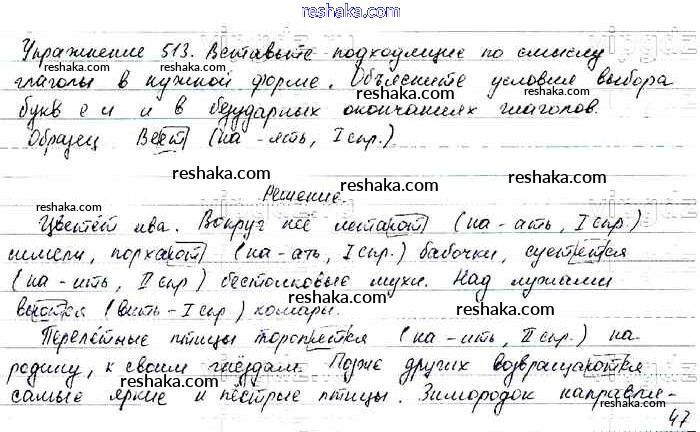 reshaka.com
Упражнение 513. Вставьте подходящие по смыслу
глаголы в нужной форме. Объясните условия выбора
букв е и и в безударных окончаниях глаголов.
Образец. Веет (на -ять, I спр.)
reshaka.com
Решение.
Цветёт ива. Вокруг неё летают (на -ать, I спр.)
шмели, порхают (на -ать, I спр.) бабочки, суетятся
(на -ить, II спр) бестолковые мухи. Над лужами
вьются (вить - I спр) комары.
Перелётные птицы торопятся (на -ить, II спр.) на
родину, к своим гнёздам. Позже других возвращаются
самые яркие и пёстрые птицы. Зимородок направля-
47
reshaka.com